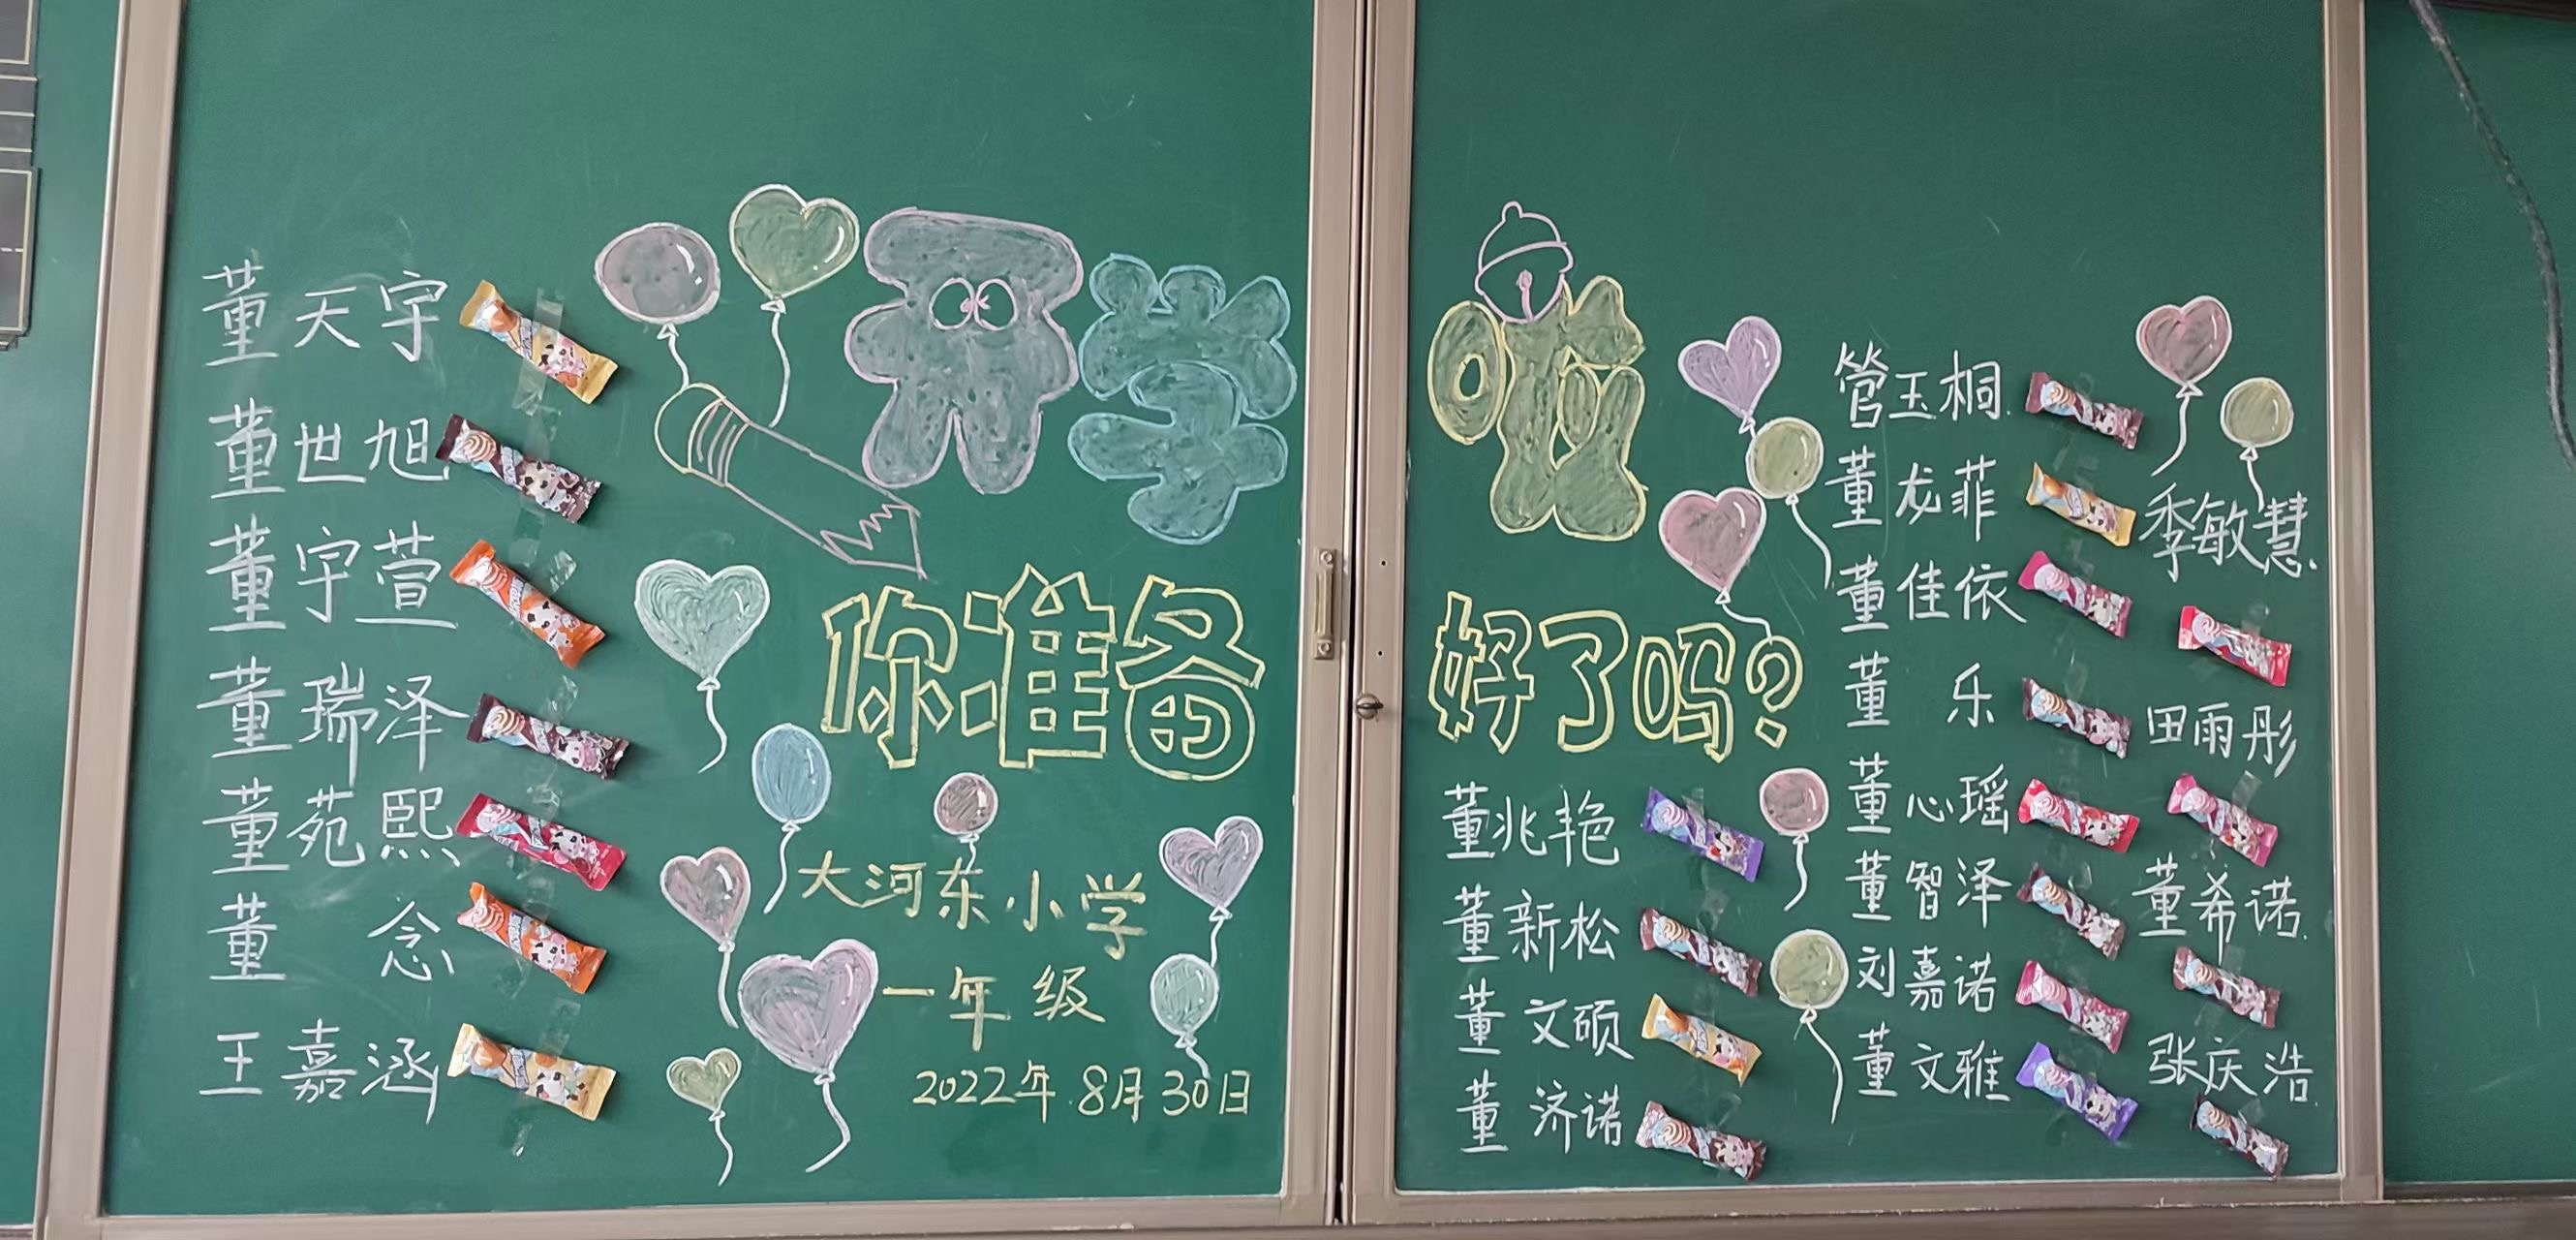 开学啦
你准备好了吗?
大河东小学
一年级
2022年.8月30日
董天宇
董世旭
董宇萱
董瑞泽
董苑熙
董念
王嘉涵
董兆艳
董新松
董文硕
董济诺
管玉桐.
董龙菲
董佳依
董乐
董心瑶
董智泽
刘嘉诺
董文雅
季敏慧.
田雨彤
董希诺.
张庆浩.